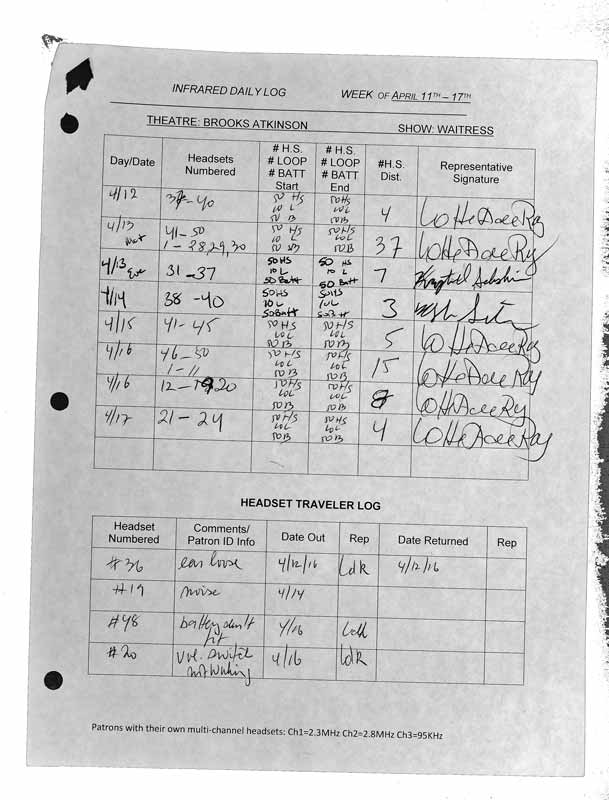 INFRARED DAILY LOG WEEK OF APRIL 11TH – 17TH
THEATRE: BROOKS ATKINSON SHOW: WAITRESS
Day/Date Headsets Numbered # H.S. # LOOP # BATT Start # H.S. # LOOP # BATT End #H.S. Dist. Representative Signature
4/12 37-40 50 HS 10 L 50 B 50HS 10L 50B 4
4/13 Mat 41-50 1-28,29,30 50 HS 10 L 50 B 50HS 10L 50B 37
4/13 Eve 31-37 50HS 10L 50Batt 50 HS 10 L 50 Batt 7
4/14 38-40 50HS 10L 50Batt 50HS 10L 50Batt 3
4/15 41-45 50HS 10L 50B 50HS 10L 50B 5
4/16 46-50 1-11 50HS 10L 50B 50HS 10L 50B 15
4/16 12-20 50HS 10L 50B 50HS 10L 50B
4/17 21-24 50HS 10L 50B 50HS 10L 50B 4
HEADSET TRAVELER LOG
Headset Numbered Comments/ Patron ID Info Date Out Rep Date Returned Rep
#36 ear loose 4/12/16 LdR 4/12/16
#19 noise 4/14
#48 battery don't fit 4/16 LdR
#20 vol. switch not working 4/16 LdR
Patrons with their own multi-channel headsets: Ch1=2.3MHz Ch2=2.8MHz Ch3=95KHz